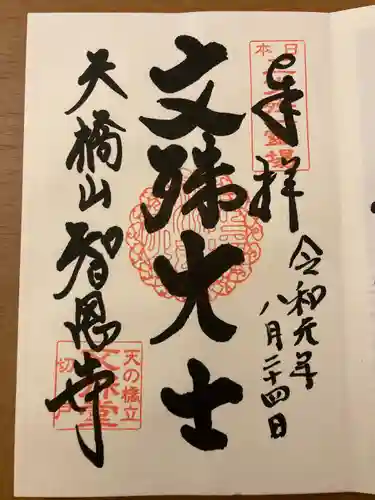 奉拝
令和元年
八月二十四日
日本三文殊霊場
文殊大士
天橋山智恩寺
天の橋立
文殊堂
切戸